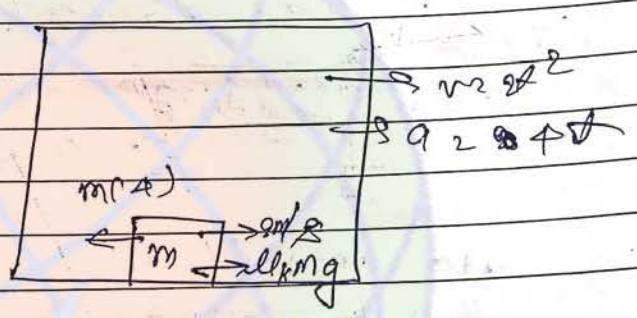 v = 2t²
a = 4t
m(4)
m
μₖmg